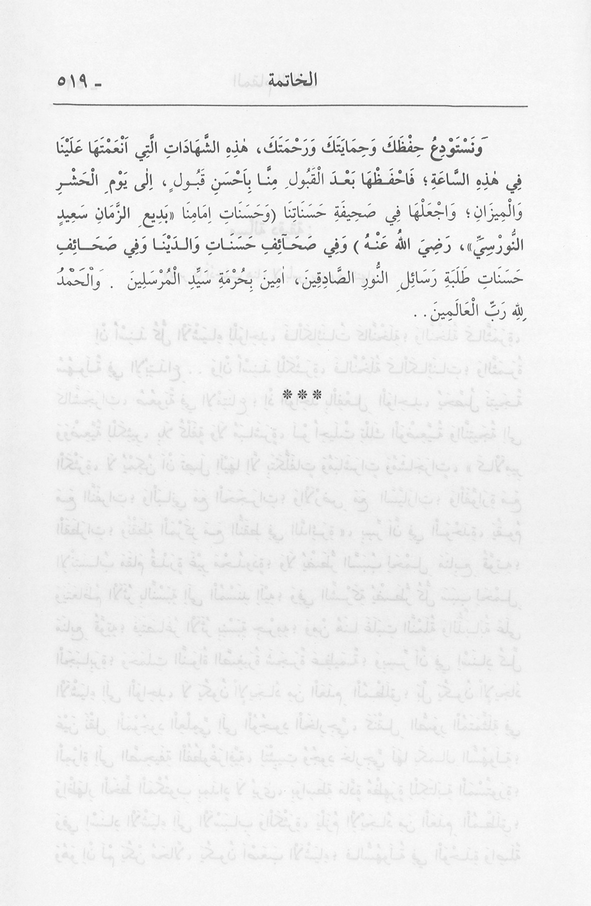 الخاتمة ـ ٥١٩
وَنَسْتَوْدِعُ حِفْظَكَ وَحِمَايَتَكَ وَرَحْمَتَكَ، هٰذِهِ الشَّهَادَاتِ الَّتِي اَنْعَمْتَهَا عَلَيْنَا
فِي هٰذِهِ السَّاعَةِ؛ فَاحْفَظْهَا بَعْدَ الْقَبُولِ مِنَّا بِاَحْسَنِ قَبُولٍ، اِلٰى يَوْمِ الْحَشْرِ
وَالْمِيزَانِ؛ وَاجْعَلْهَا فِي صَحِيفَةِ حَسَنَاتِنَا (وَحَسَنَاتِ اِمَامِنَا «بَدِيعِ الزَّمَانِ سَعِيدٍ
النُّورْسِيِّ»، رَضِيَ اللهُ عَنْهُ) وَفِي صَحَآئِفِ حَسَنَاتِ وَالَدِيْنَا وَفِي صَحَائِفِ
حَسَنَاتِ طَلَبَةِ رَسَائِلِ النُّورِ الصَّادِقِينَ، اٰمِينَ بِحُرْمَةِ سَيِّدِ الْمُرْسَلِينَ . وَالْحَمْدُ
لِلّٰهِ رَبِّ الْعَالَمِينَ..
***